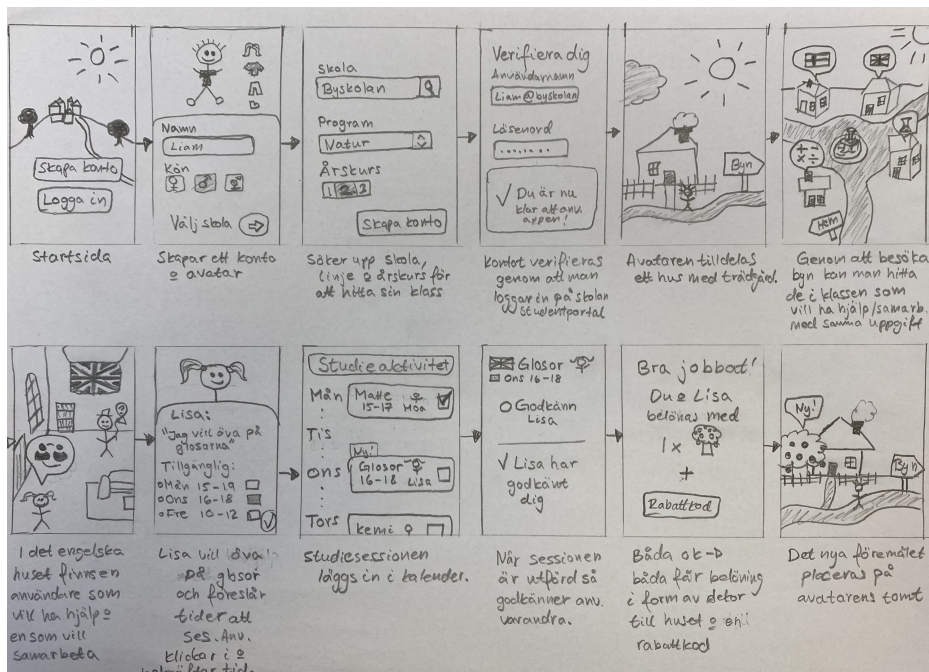 Skapa konto
Logga in
Startsida
Namn
Liam
Kön
Välj skola
Skapar ett konto
& avatar
Skola
Byskolan
Program
Natur
Årskurs
1 2 3
Skapa konto
Söker upp skola,
linje & årskurs för
att hitta sin klass
Verifiera dig
Användarnamn
Liam@byskolan
Lösenord
........
✓ Du är nu
klar att anv.
appen!
kontot verifieras
genom att man
loggar in på skolan
studentportal
Byn
Avataren tilldelas
ett hus med trädgård.
Hem
Genom att besöka
byn kan man hitta
de i klassen som
vill ha hjälp/samarb.
med samma uppgift
I det engelska
huset finns en
användare som
vill ha hjälp &
en som vill
samarbeta
Lisa:
"Jag vill öva på
glosorna"
Tillgänglig:
Mån 15-19
Ons 16-18
Fre 10-12
Lisa vill öva
på glosor
och föreslår
tider att
ses. Anv.
klickar i &
Studieaktivitet
Mån
Matte
15-17 Moa
Tis
Ny!
Ons
Glosor
16-18 Lisa
Tors
kemi
Studiesessionen
läggs in i kalender.
Glosor
Ons 16-18
Godkänn
Lisa
✓ Lisa har
godkänt
dig
När sessionen
är utförd så
godkänner anv.
varandra.
Bra jobbat!
Du & Lisa
belönas med
1x
+
Rabattkod
Båda ok →
båda får belöning
i form av
till huset &
rabattkod
Ny!
Byn
Det nya föremålet
placeras på
avatarens tomt